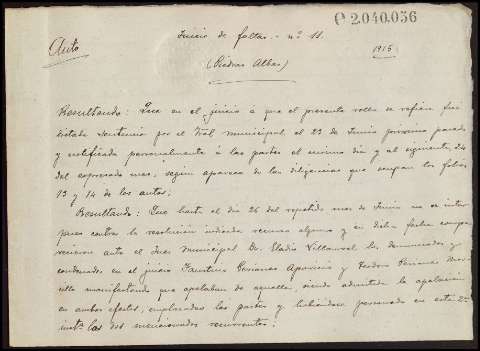 C 2.040.036
Juicio de faltas.- nº 11
Auto
1915
(Piedras Albas)
Resultando: Que en el juicio á que el presente rollo se refiere fué
dictada sentencia por el Tral Municipal, el 23 de Junio próximo pasado
y notificada personalmente á las partes el mismo dia y al siguiente, 24
del expresado mes, según aparece de las diligencias que ocupan los folios
13 y 14 de los autos;
Resultando: Que hasta el dia 26 del repetido mes de Junio no se inter
puso contra la resolución indicada recurso alguno y en dicha fecha compa
recieron ante el Juez Municipal Dn. Eladio Villarroel los denunciados y
condenados en el juicio Faustino Aparicio y
manifestando que apelaban de aquella, siendo admitida la apelación
en ambos efectos, emplazadas las partes y habiéndose personado en esta 2ª
instª las dos mencionados recurrentes;